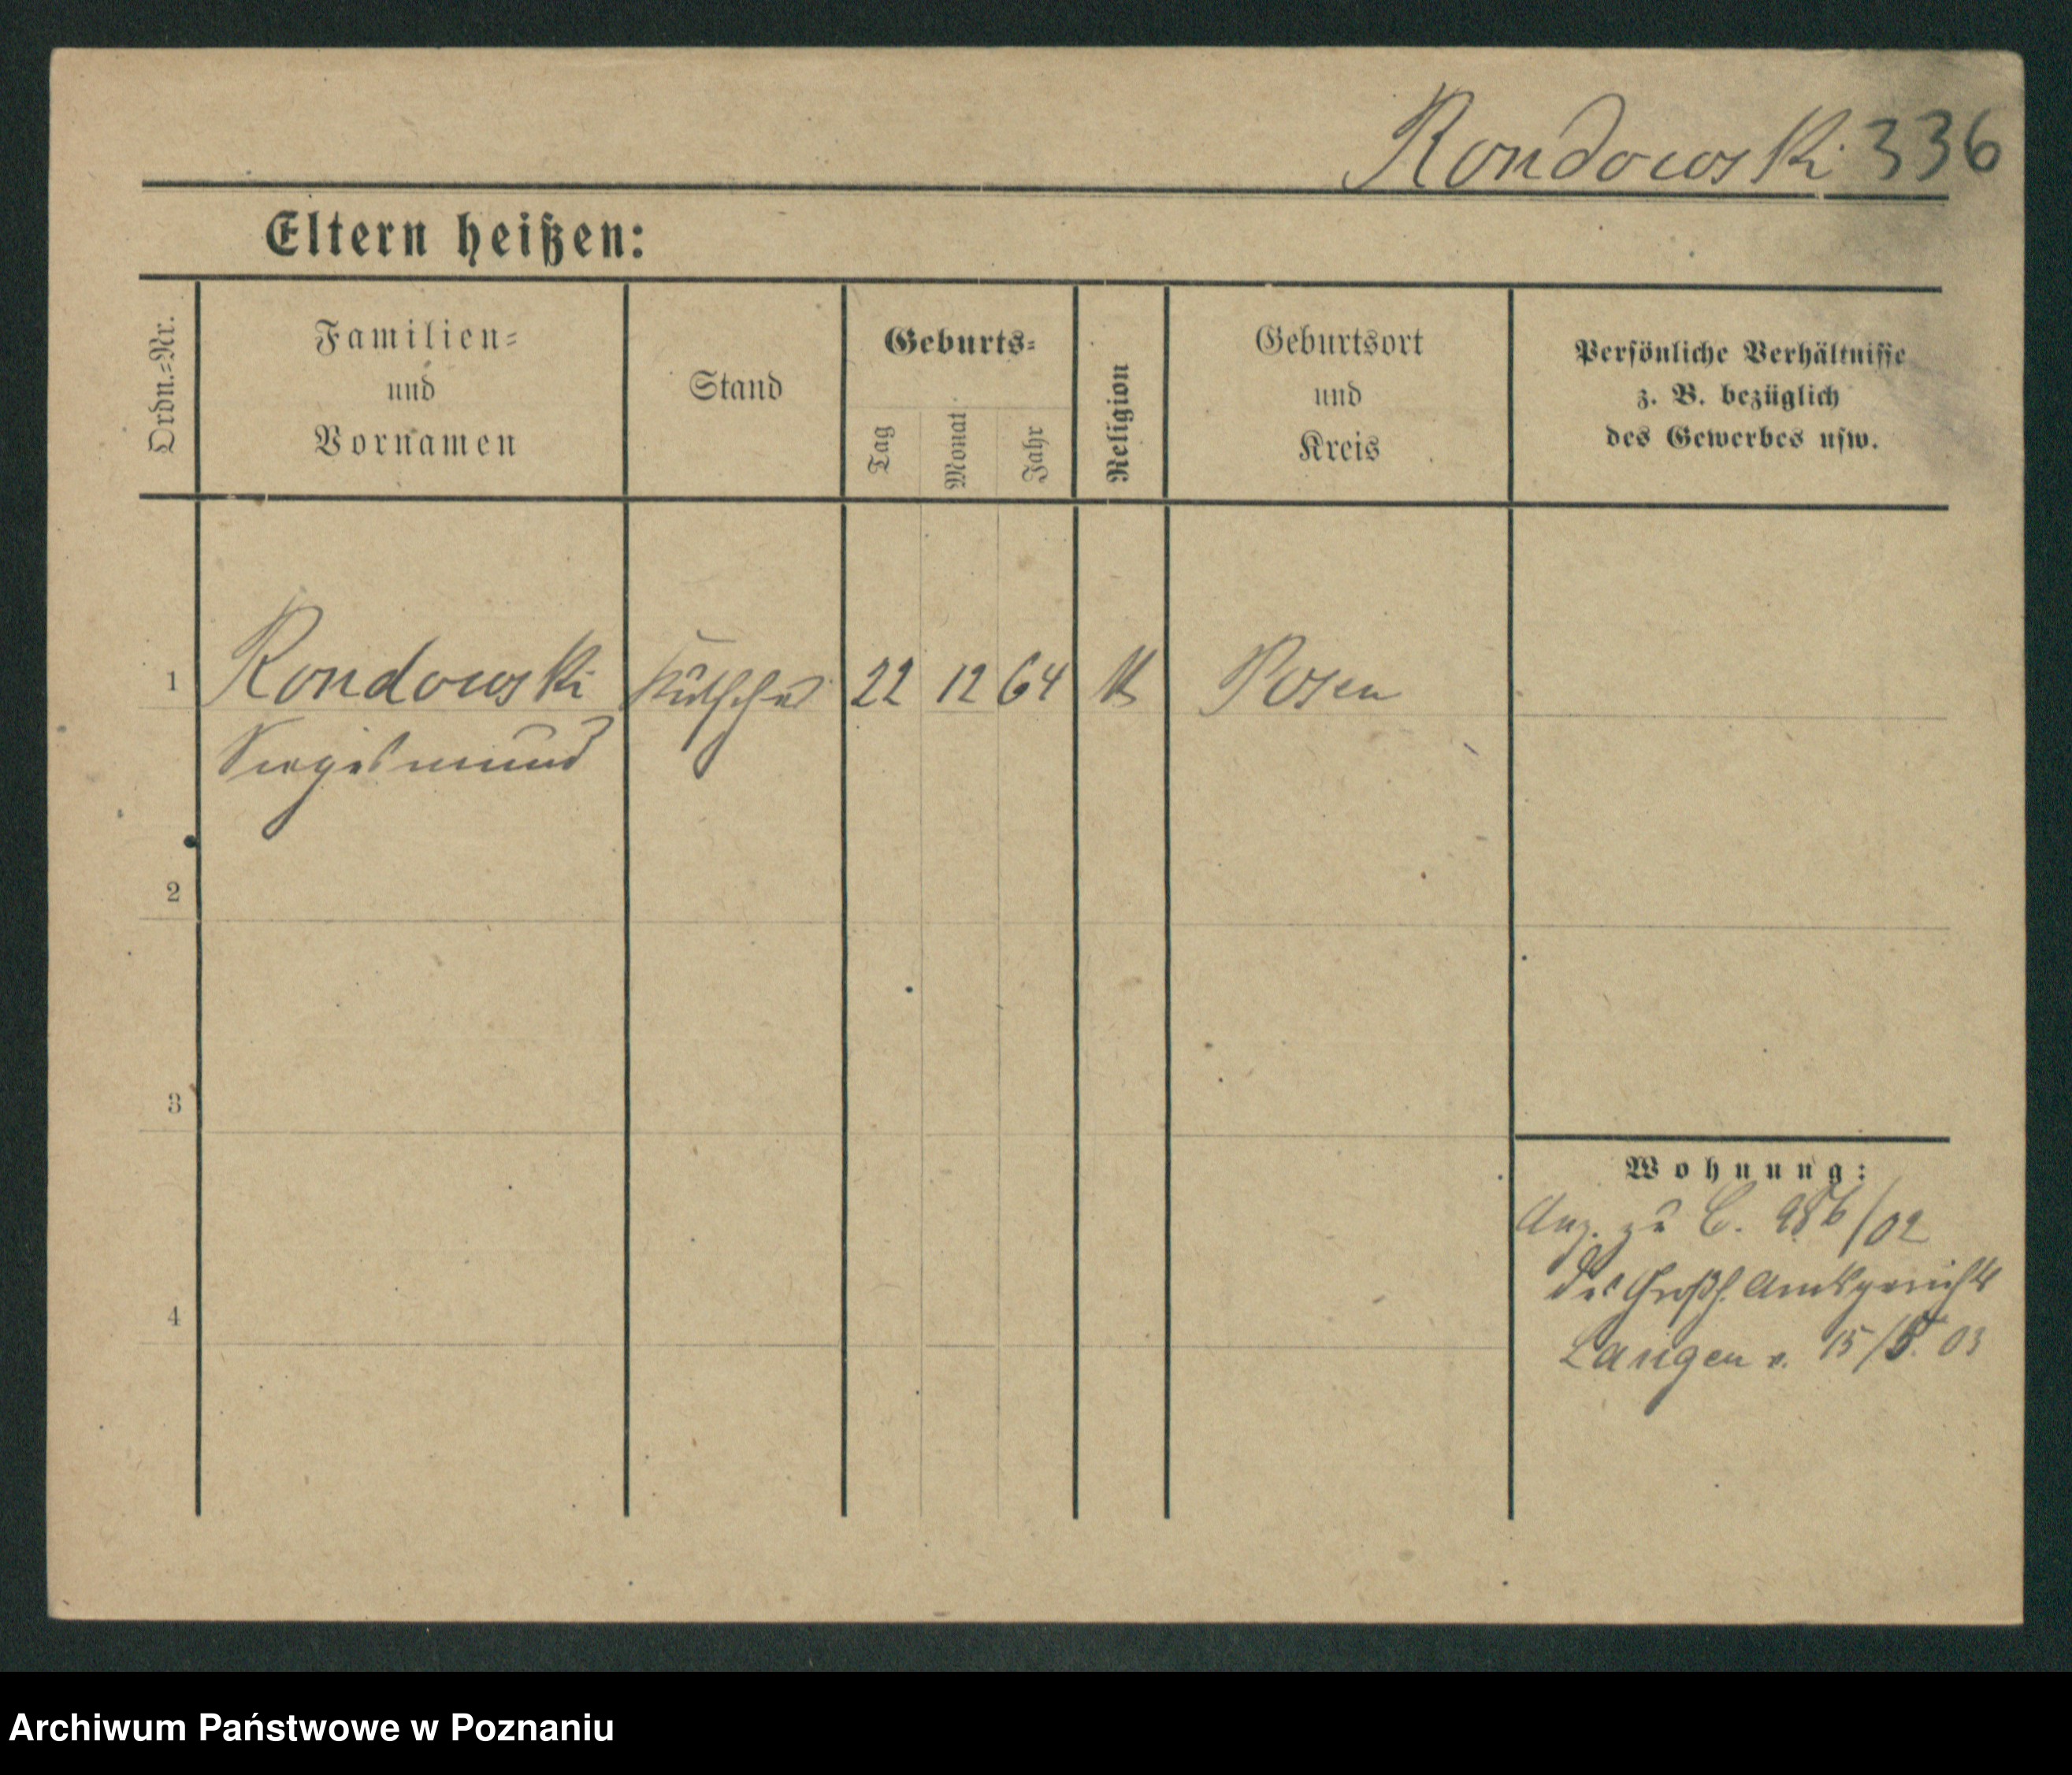 Rondowski 336
Eltern heißen:
Ordn.=Nr.
Familien=
und
Vornamen
Stand
Geburts=
Tag
Monat
Jahr
Religion
Geburtsort
und
Kreis
Persönliche Verhältnisse
z. B. bezüglich
des Gewerbes usw.
1 Rondowski Kutscher 22 12 64 K Posen
Siegismund
2
3
4
Wohnung:
Anz. zu C. 986/02
des Großh. Amtsgerichts
Langen v. 15/5. 03
Archiwum Państwowe w Poznaniu